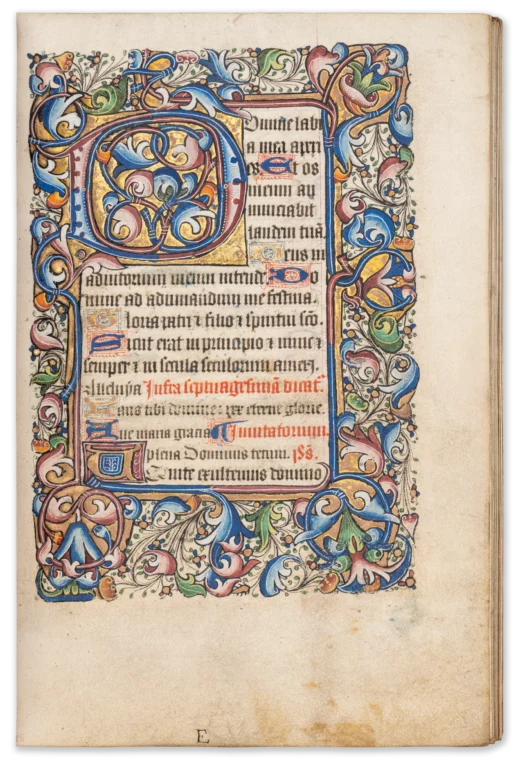 Domine labi
a mea aperi
es Et os
meum an
nunciabit
laudem tuā.
Deus in
adiutorium meum intende Do
mine ad adiuuandum me festina.
Gloria patri ⁊ filio ⁊ spiritui scō.
Sicut erat in principio ⁊ nunc ⁊
semper ⁊ in secula seculorum amen.
Alleluya Infra septuagesimā dicatͬ
Laus tibi domine rex eterne glorie.
Aue maria gratia Inuitatorium.
plena Dominus tecum. ps̄.
Uenite exultemus domino
E